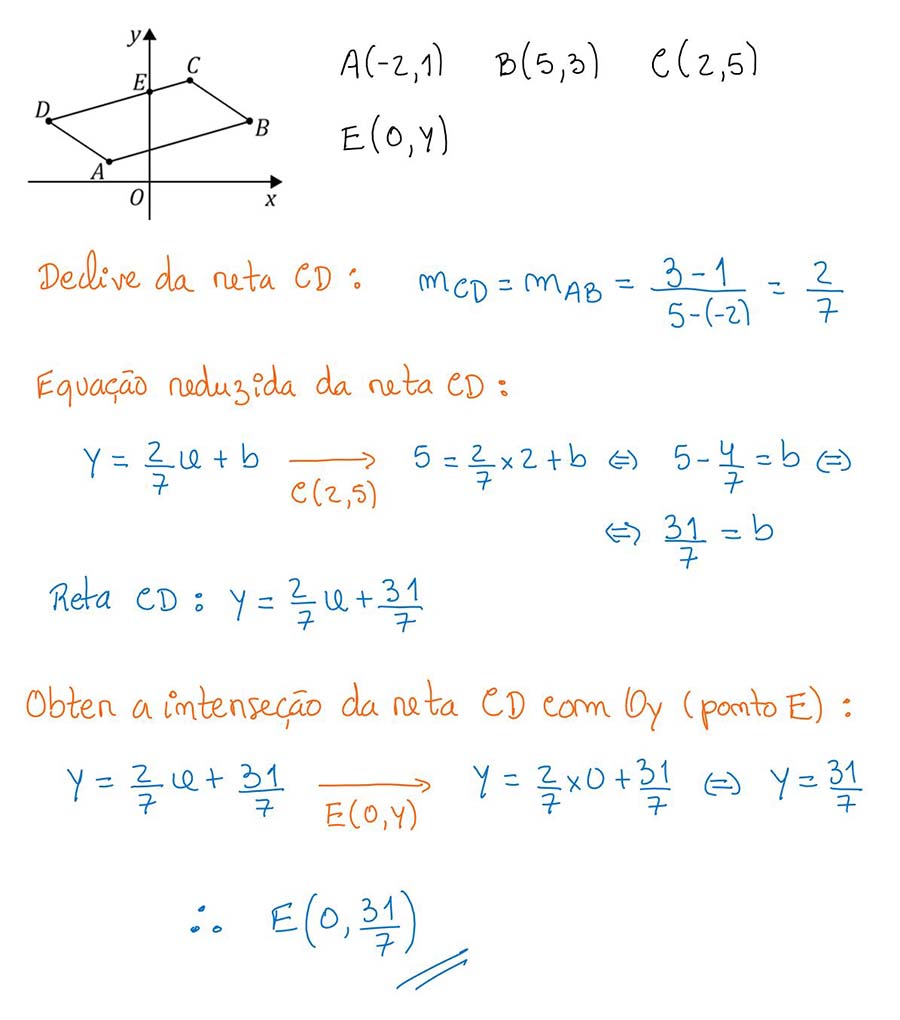 y
C
E
D
B
A
O
x
A(-2,1) B(5,3) C(2,5)
E(0,y)
Declive da reta CD: m_CD = m_AB = \frac{3-1}{5-(-2)} = \frac{2}{7}
Equação reduzida da reta CD:
y = \frac{2}{7}x + b → C(2,5) 5 = \frac{2}{7}×2+b ⇔ 5-\frac{4}{7} = b ⇔
⇔ \frac{31}{7} = b
Reta CD: y = \frac{2}{7}x + \frac{31}{7}
Obter a interseção da reta CD com Oy (ponto E):
y = \frac{2}{7}x + \frac{31}{7} → E(0,y) y = \frac{2}{7}×0+\frac{31}{7} ⇔ y = \frac{31}{7}
∴ E(0, \frac{31}{7})